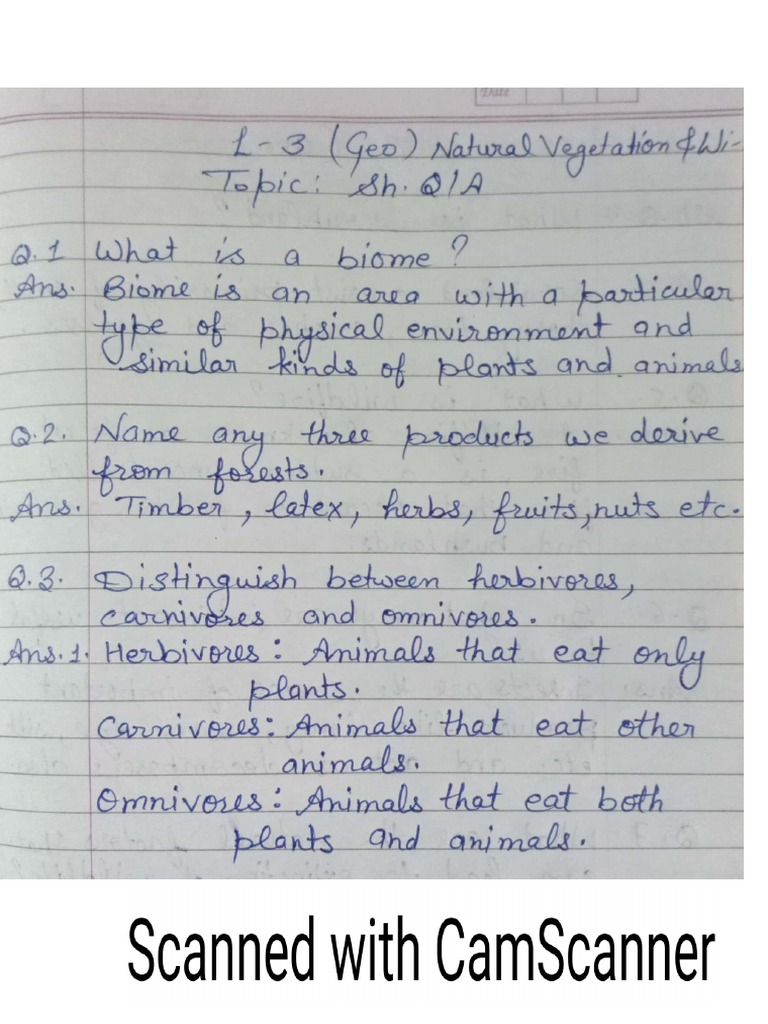 Date
L-3 (Geo) Natural Vegetation & Wi-
Topic: Sh. Q/A
Q.1 What is a biome?
Ans. Biome is an area with a particular
type of physical environment and
similar kinds of plants and animals
Q.2. Name any three products we derive
from forests.
Ans. Timber, latex, herbs, fruits, nuts etc.
Q.3. Distinguish between herbivores,
carnivores and omnivores.
Ans.1. Herbivores: Animals that eat only
plants.
Carnivores: Animals that eat other
animals.
Omnivores: Animals that eat both
plants and animals.
Scanned with CamScanner